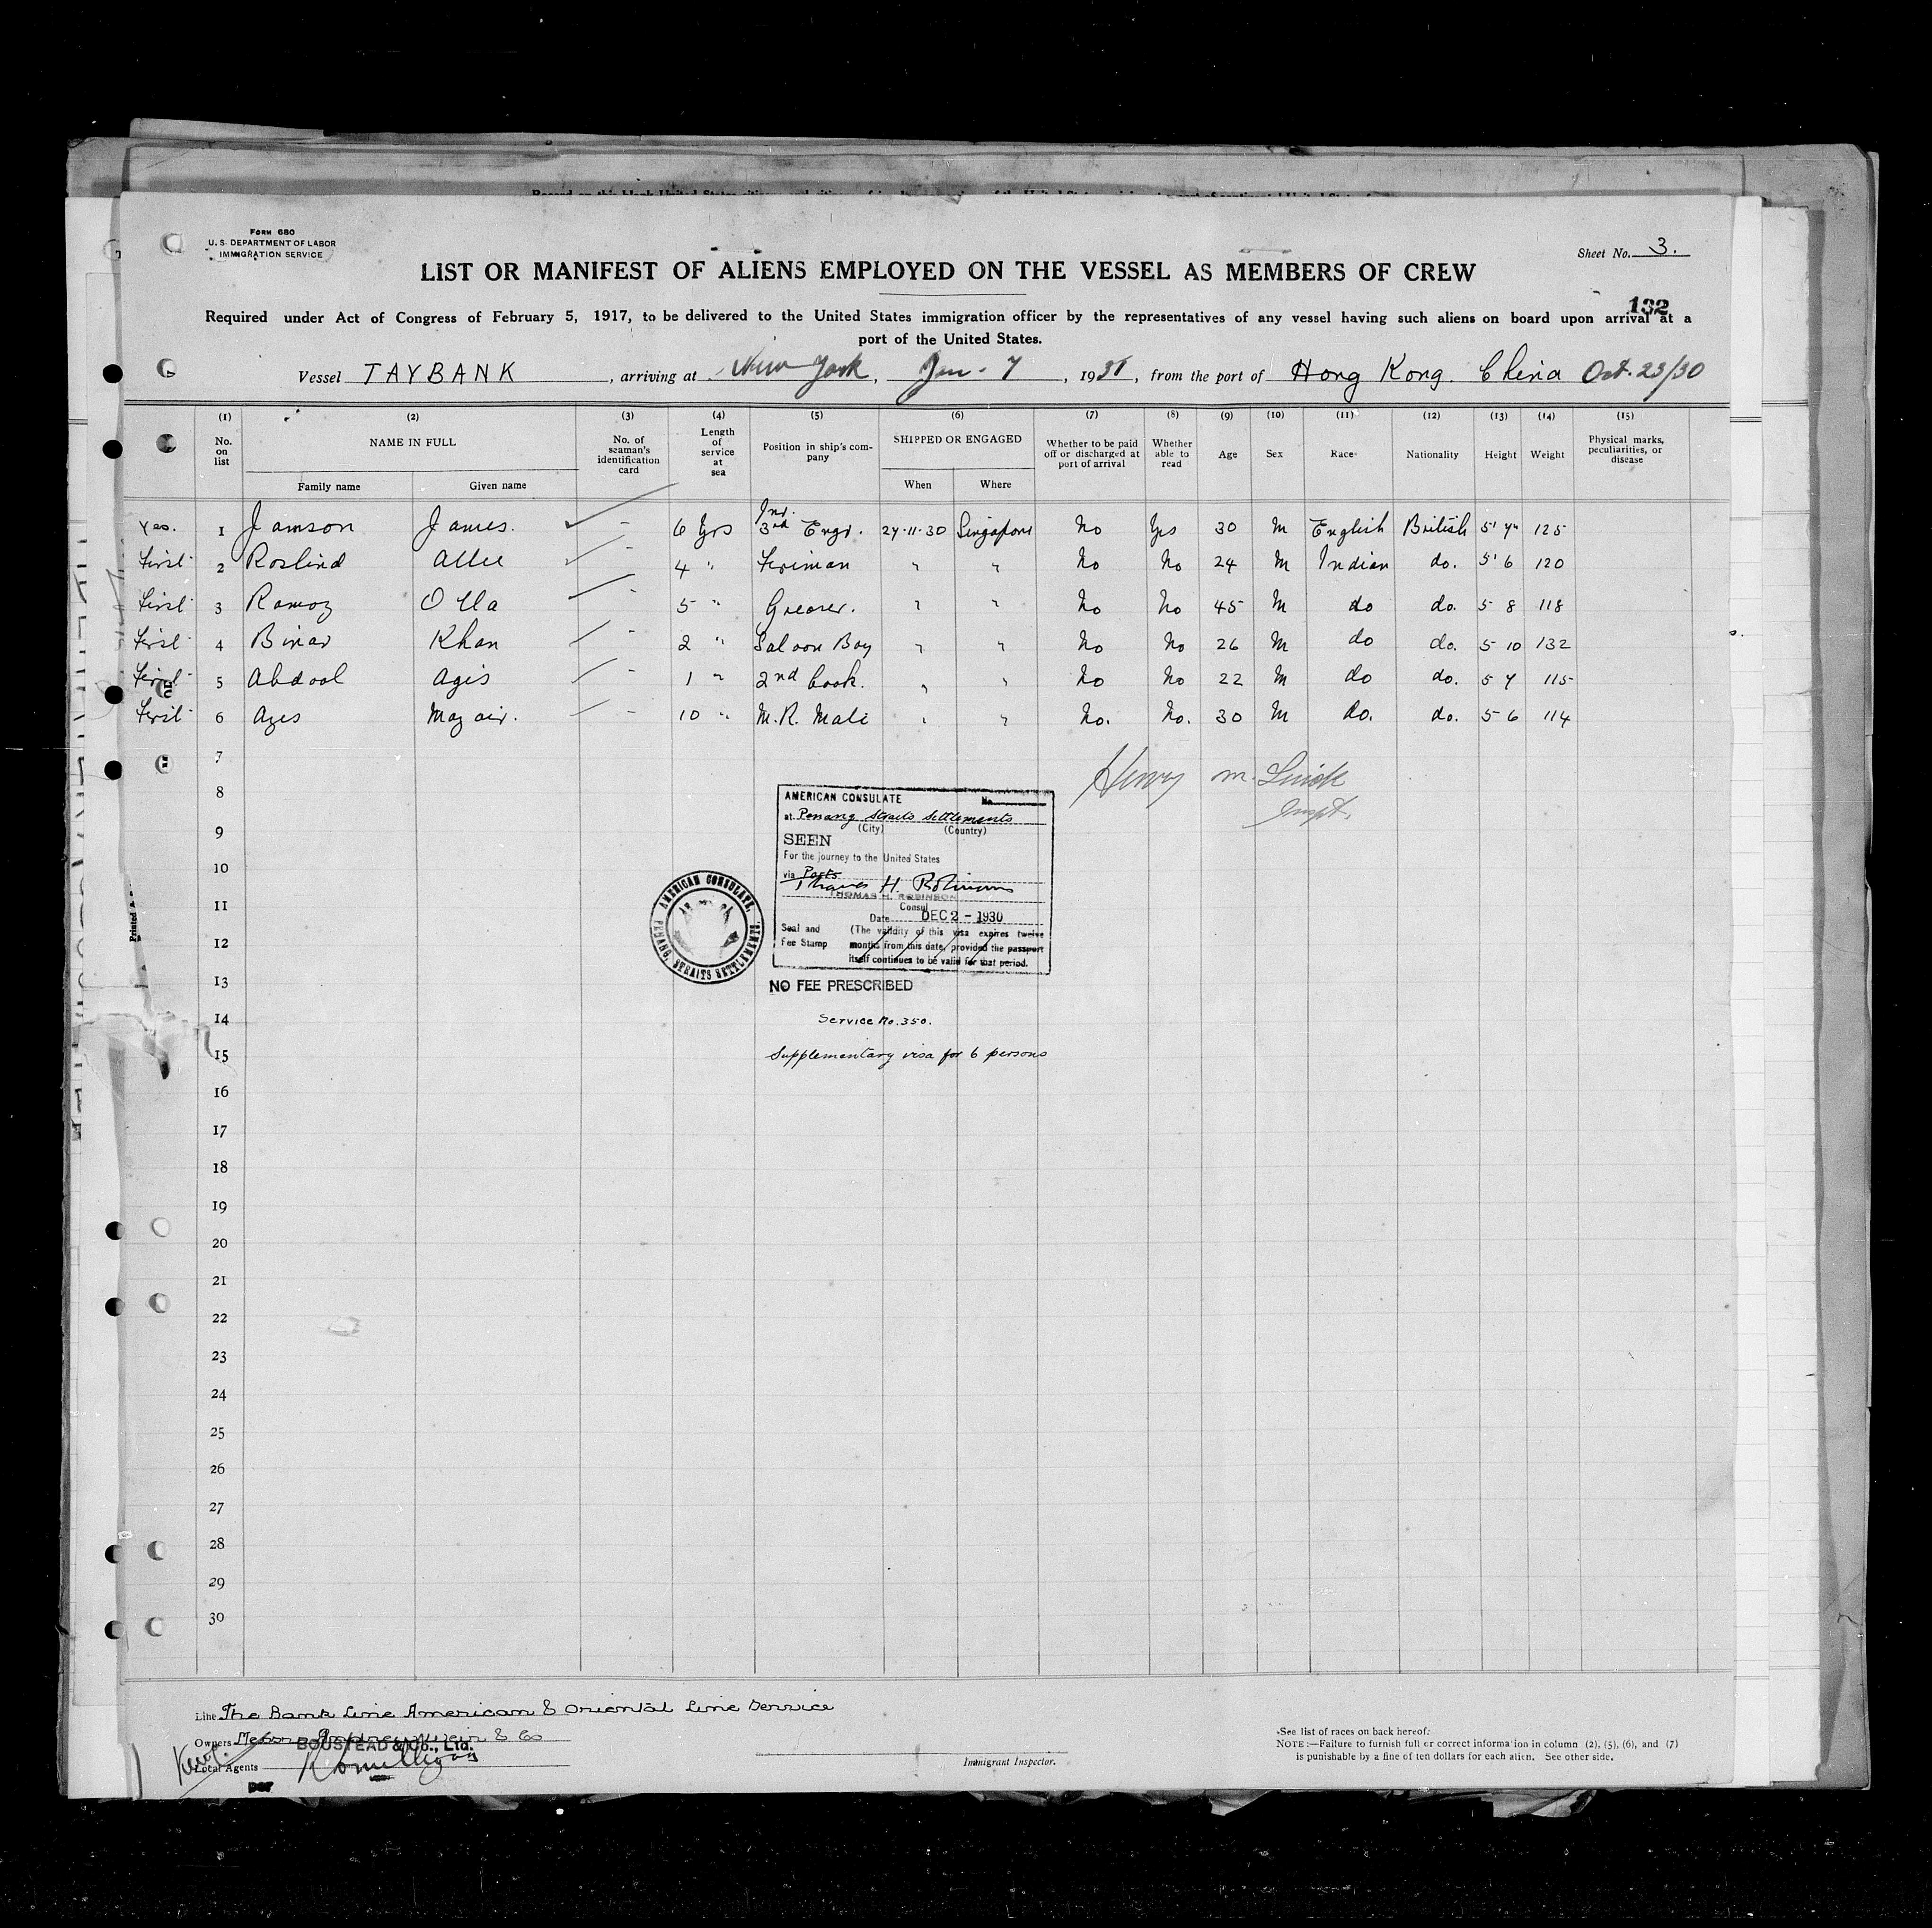 FORM 680
U. S. DEPARTMENT OF LABOR
IMMIGRATION SERVICE
Sheet No. 3.
LIST OR MANIFEST OF ALIENS EMPLOYED ON THE VESSEL AS MEMBERS OF CREW
132
Required under Act of Congress of February 5, 1917, to be delivered to the United States immigration officer by the representatives of any vessel having such aliens on board upon arrival at a
port of the United States.
Vessel TAYBANK, arriving at New York, Jan. 7, 1931, from the port of Hong Kong. China Oct. 23/30
(1) (2) (3) (4) (5) (6) (7) (8) (9) (10) (11) (12) (13) (14) (15)
No. on list NAME IN FULL No. of seaman's identification card Length of service at sea Position in ship's company SHIPPED OR ENGAGED Whether to be paid off or discharged at port of arrival Whether able to read Age Sex Race Nationality Height Weight Physical marks, peculiarities, or disease
Family name Given name When Where
Yes. 1 Jamson James. – 6 Yrs Jnr. 3rd Engr. 27.11.30 Singapore No Yes 30 M English British 5' 7" 125
First 2 Roslind Allee – 4 " Firiman " " No No 24 M Indian do. 5' 6 120
First 3 Ramoz Olla – 5 " Greaser. " " No No 45 M do do. 5 8 118
First 4 Binar Khan – 2 " Saloon Boy " " No No 26 M do do. 5 10 132
First 5 Abdool Agis – 1 " 2nd Cook. " " No No 22 M do do. 5 7 115
First 6 Azes Mozair. – 10 " M.R. Mate " " No. No. 30 M do. do. 5 6 114
7
Henry M.
Inspt.
8
AMERICAN CONSULATE No.
at Penang Straits Settlements
(City) (Country)
9
SEEN
For the journey to the United States
10
via Ports
Thomas H. Robinson
THOMAS H. ROBINSON
Consul
11
Date DEC 2 - 1930
Seal and Fee Stamp (The validity of this visa expires twelve
months from this date, provided the passport
itself continues to be valid for that period.
AMERICAN CONSULATE, PENANG, STRAITS SETTLEMENTS.
12
13
NO FEE PRESCRIBED
14
Service No. 350.
15
Supplementary visa for 6 persons
16
17
18
19
20
21
22
23
24
25
26
27
28
29
30
Line The Bank Line American & Oriental Line Service
Owners Messrs Andrew Weir & Co
BOUSTEAD & Co., Ltd.
Local Agents
per
Immigrant Inspector.
See list of races on back hereof.
NOTE:—Failure to furnish full or correct information in column (2), (5), (6), and (7)
is punishable by a fine of ten dollars for each alien. See other side.